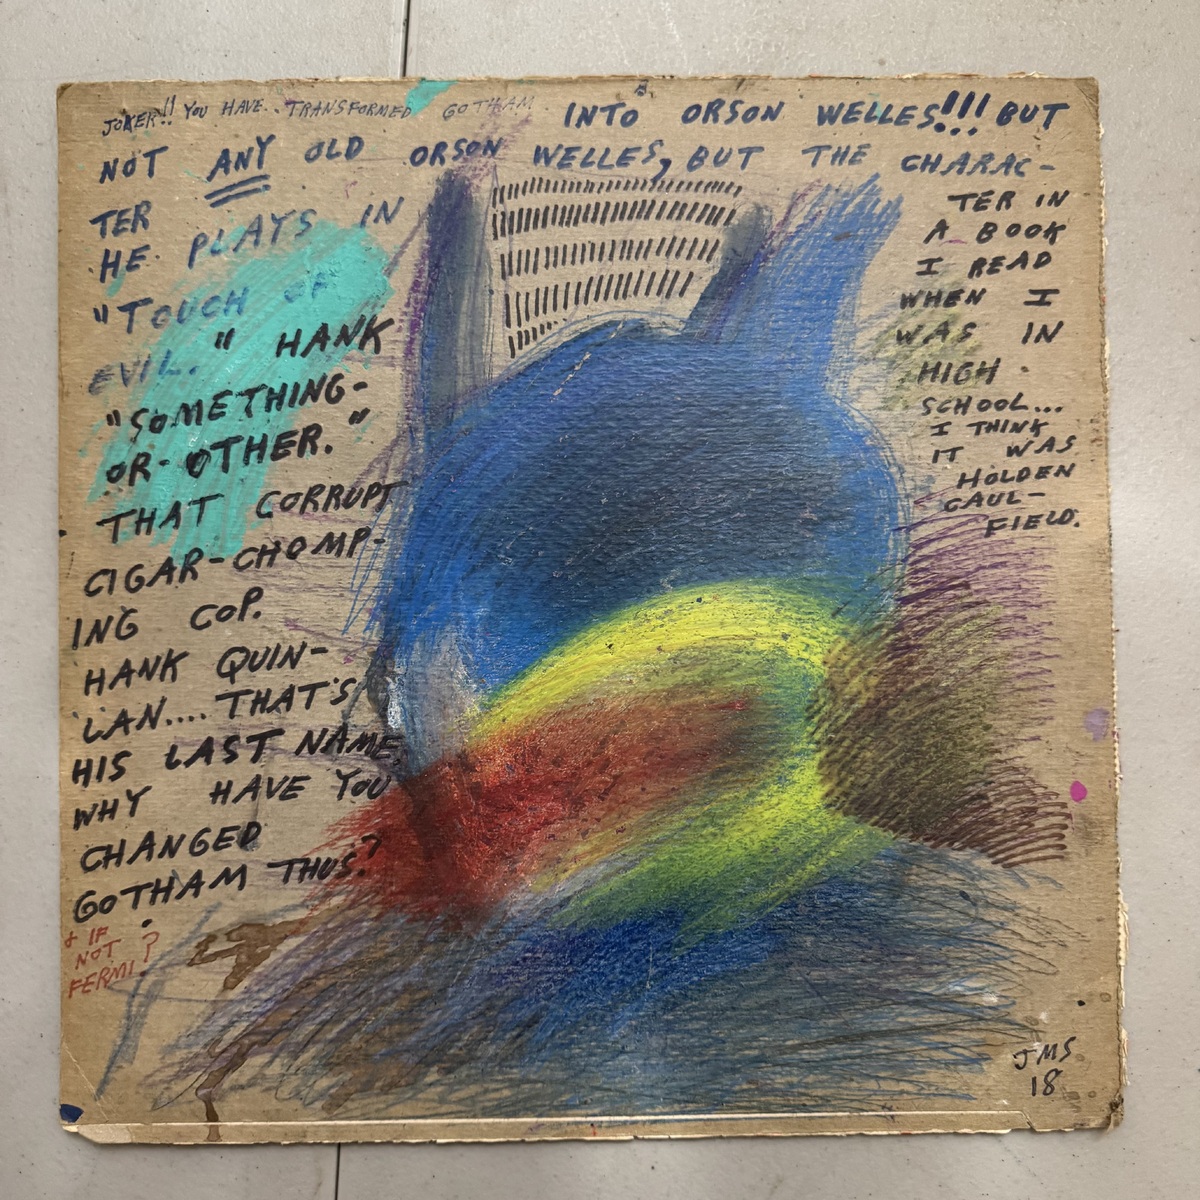 JOKER!! YOU HAVE.. TRANSFORMED GOTHAM. INTO ORSON WELLES!!! BUT
NOT ANY OLD ORSON WELLES, BUT THE CHARAC-
TER IN
A BOOK
I READ
WHEN I
WAS IN
HIGH
SCHOOL...
I THINK
IT WAS
HOLDEN
CAUL-
FIELD.
TER
HE PLAYS IN
"TOUCH OF
EVIL." HANK
"SOMETHING-
OR-OTHER."
THAT CORRUPT
CIGAR-CHOMP-
ING COP.
HANK QUIN-
LAN.... THAT'S
HIS LAST NAME,
WHY HAVE YOU
CHANGED
GOTHAM THUS?
& IF
NOT
FERMI?
JMS
18